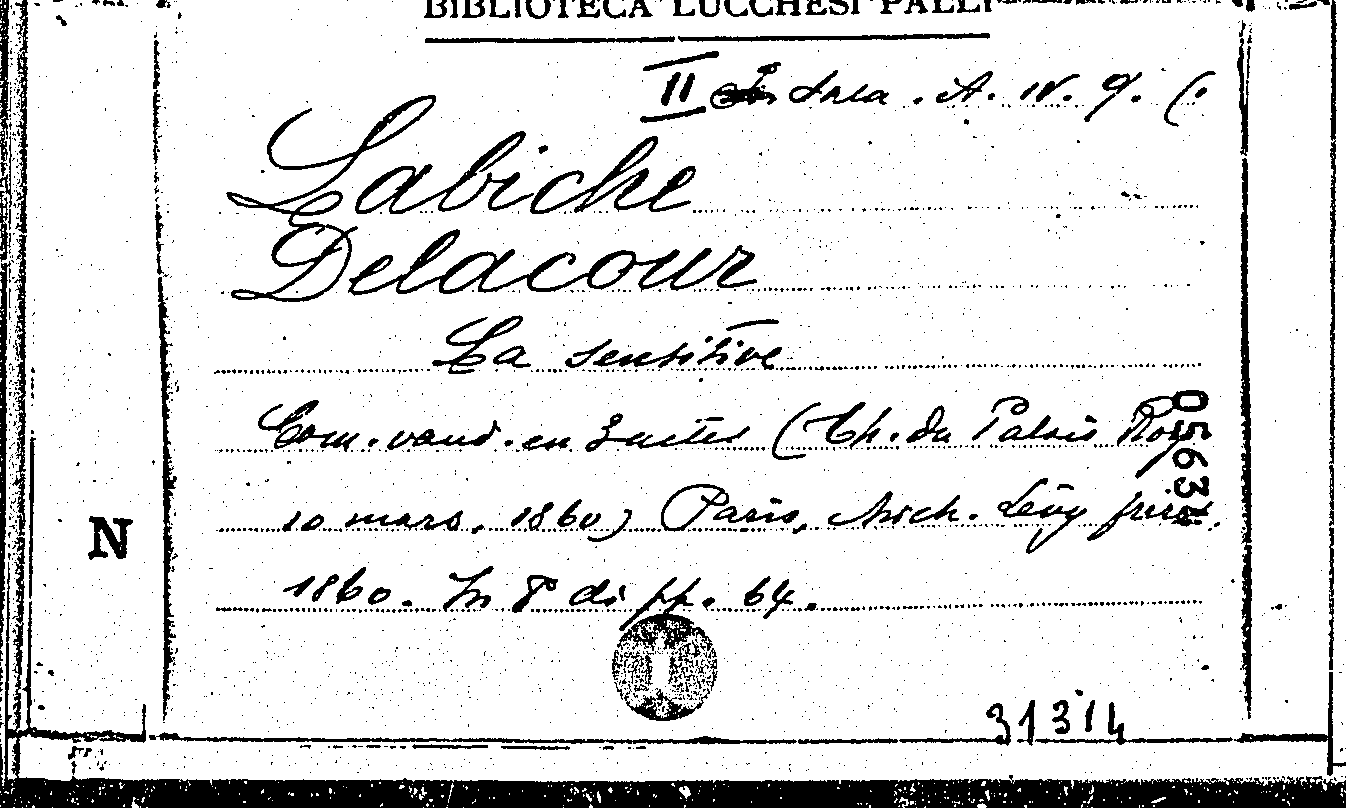 BIBLIOTECA LUCCHESI PALLI
II Sala . A. IV. 9. (.
Labiche
Delacour
La sensitive
Com. vaud. en 3 actes (Th. du Palais Roy.
10 mars, 1860) Paris, Mich. Lévy frères.
1860. In 8° di pp. 64.
N
0563
31314